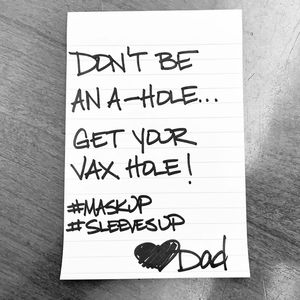 DON'T BE
AN A-HOLE...
GET YOUR
VAX HOLE!
#MASKUP
#SLEEVESUP
Dad